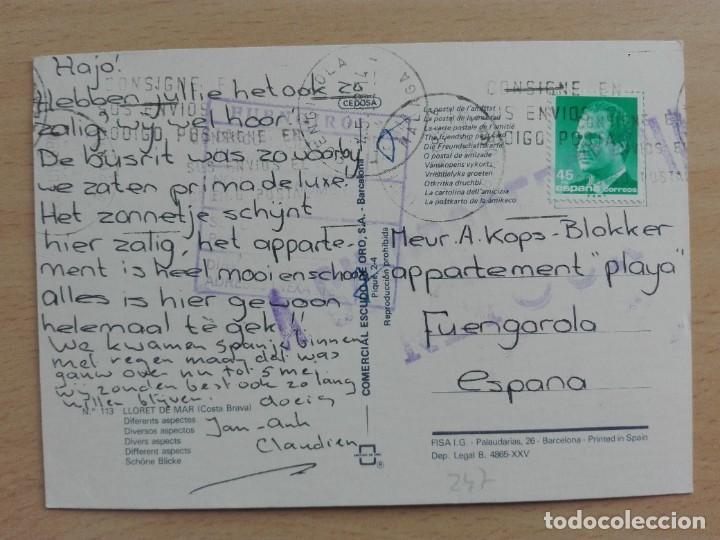 Hajo!
Hebben jullie het ook zo
zalig? wij wel hoor!
De busrit was zo voorbij
we zaten prima de luxe.
Het zonnetje schynt
hier zalig, het apparte-
ment is heel mooi en schoon
alles is hier gewoon
helemaal te gek!!
We kwamen spanje binnen
met regen maar dat was
gauw over nu tot 5 mei.
wij zouden best ook zo lang
willen blijven.
doeig
Jan-Anh
Claudien
N.º 113 LLORET DE MAR (Costa Brava)
Diferents aspectes
Diversos aspectos
Divers aspects
Different aspects
Schöne Blicke
CEDOSA
COMERCIAL ESCUDO DE ORO, S.A. - Barcelona
Pique, 2-4
Reproducción prohibida
La postal de l'amistat
La postal de la amistad
La carte postale de l'amitié
The friendship postcard
Die Freundschaftskarte
O postal de amizade
Vänskapens vykort
Vriendschaps groeten
Otkritka druchbi
La cartolina dell'amicizia
La postkarto de la amikeco
CONSIGNE EN
SUS ENVIOS
CODIGO POSTAL
MALAGA
45
españa correos
Meur. A. Kops-Blokker
appartement "playa"
Fuengarola
Espana
FISA I.G. - Palaudarias, 26 - Barcelona - Printed in Spain
Dep. Legal B. 4865-XXV
247
todocoleccion